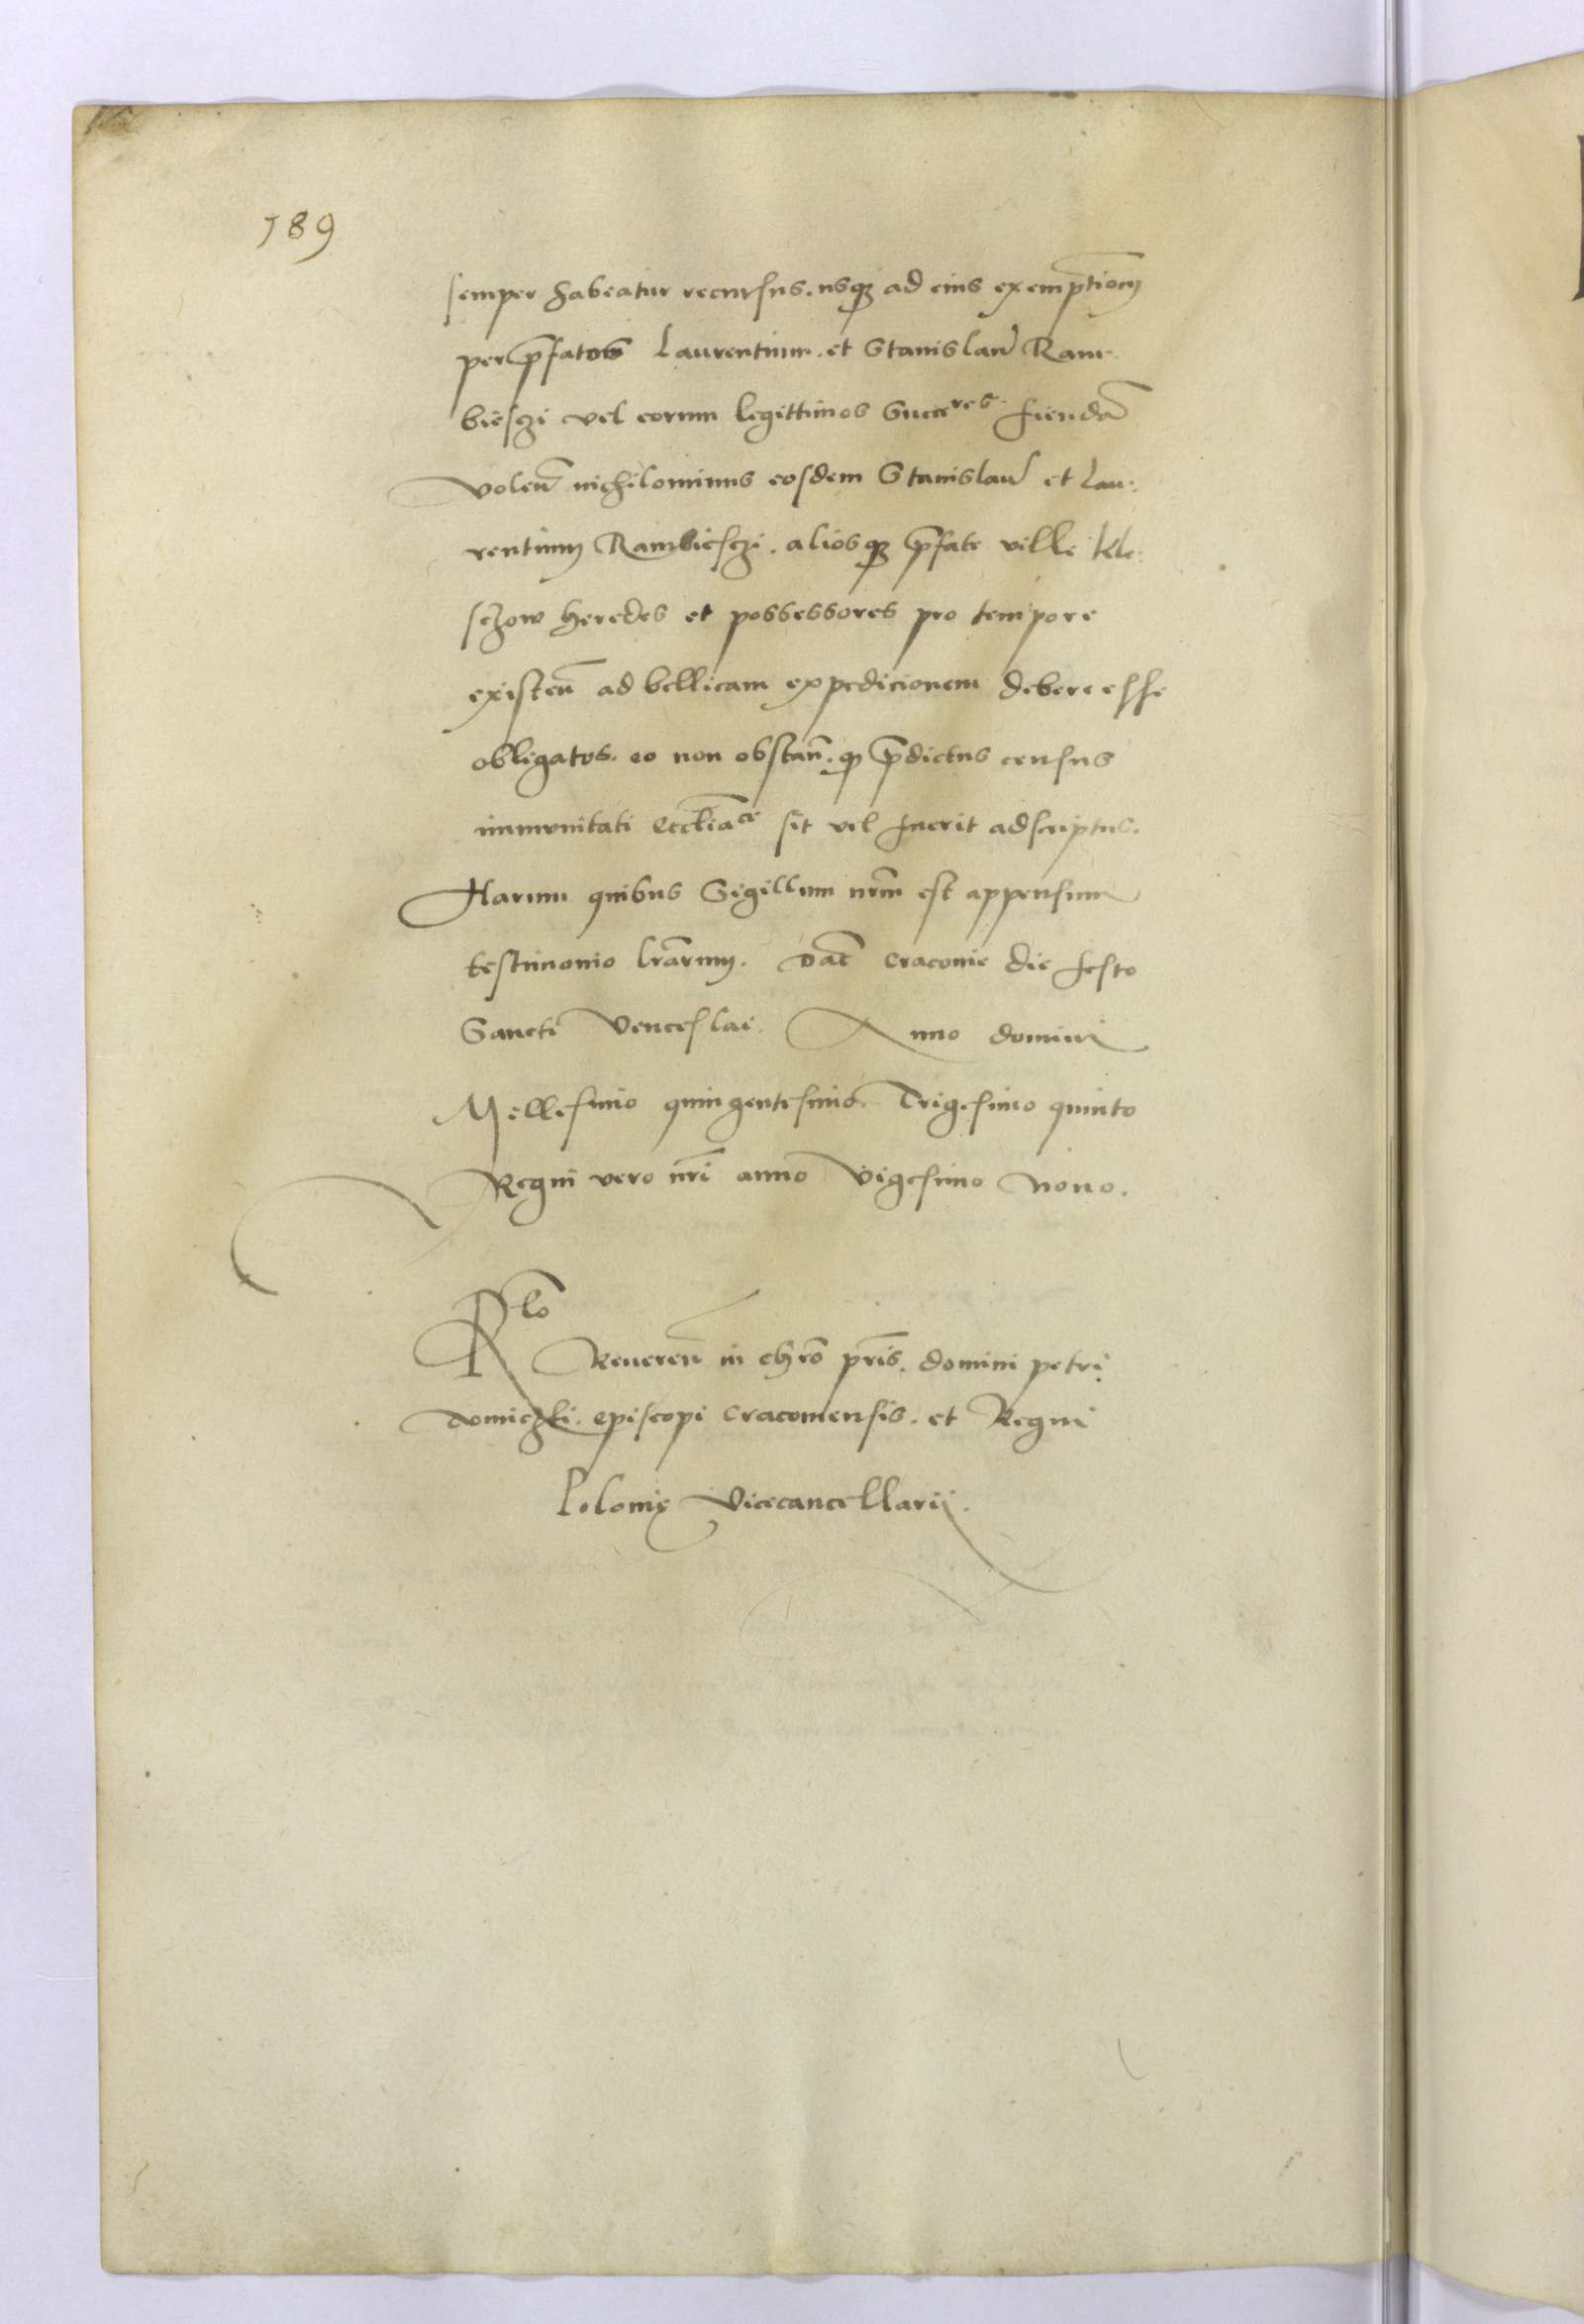 189
semper habeatur recursus. usqꝫ ad eius exemptionē
per p̄fatos Laurentium. et Stanislau̅ Ram-
biesczi vel eorum legittimos Succeres fienda̅
Volen̅ nichilominus eosdem Stanislau̅ et Lau-
rentium Rambiesczi. aliosqꝫ p̄fate ville Kle-
sczow heredes et possessores pro tempore
existen̅ ad bellicam expedicionem debere esse
obligatos. eo non obstan̅. qꝫ p̄dictus census
immunitati Eccl̅iace sit vel fuerit adscriptus.
Harum quibus Sigillum nr̅m est appensum
testimonio lr̅arum. Dat̅ Cracovie die festo
Sancti Venceslai. Anno domini
Millesimo quingentesimo. Trigesimo quinto
Regni vero nr̅i anno Vigesimo Nono.
Rlō
Reveren̅ in chr̅o pr̅is. domini petri
Tomiczki. episcopi Cracoviensis. et Regni
Polonię Vicecancellarii.